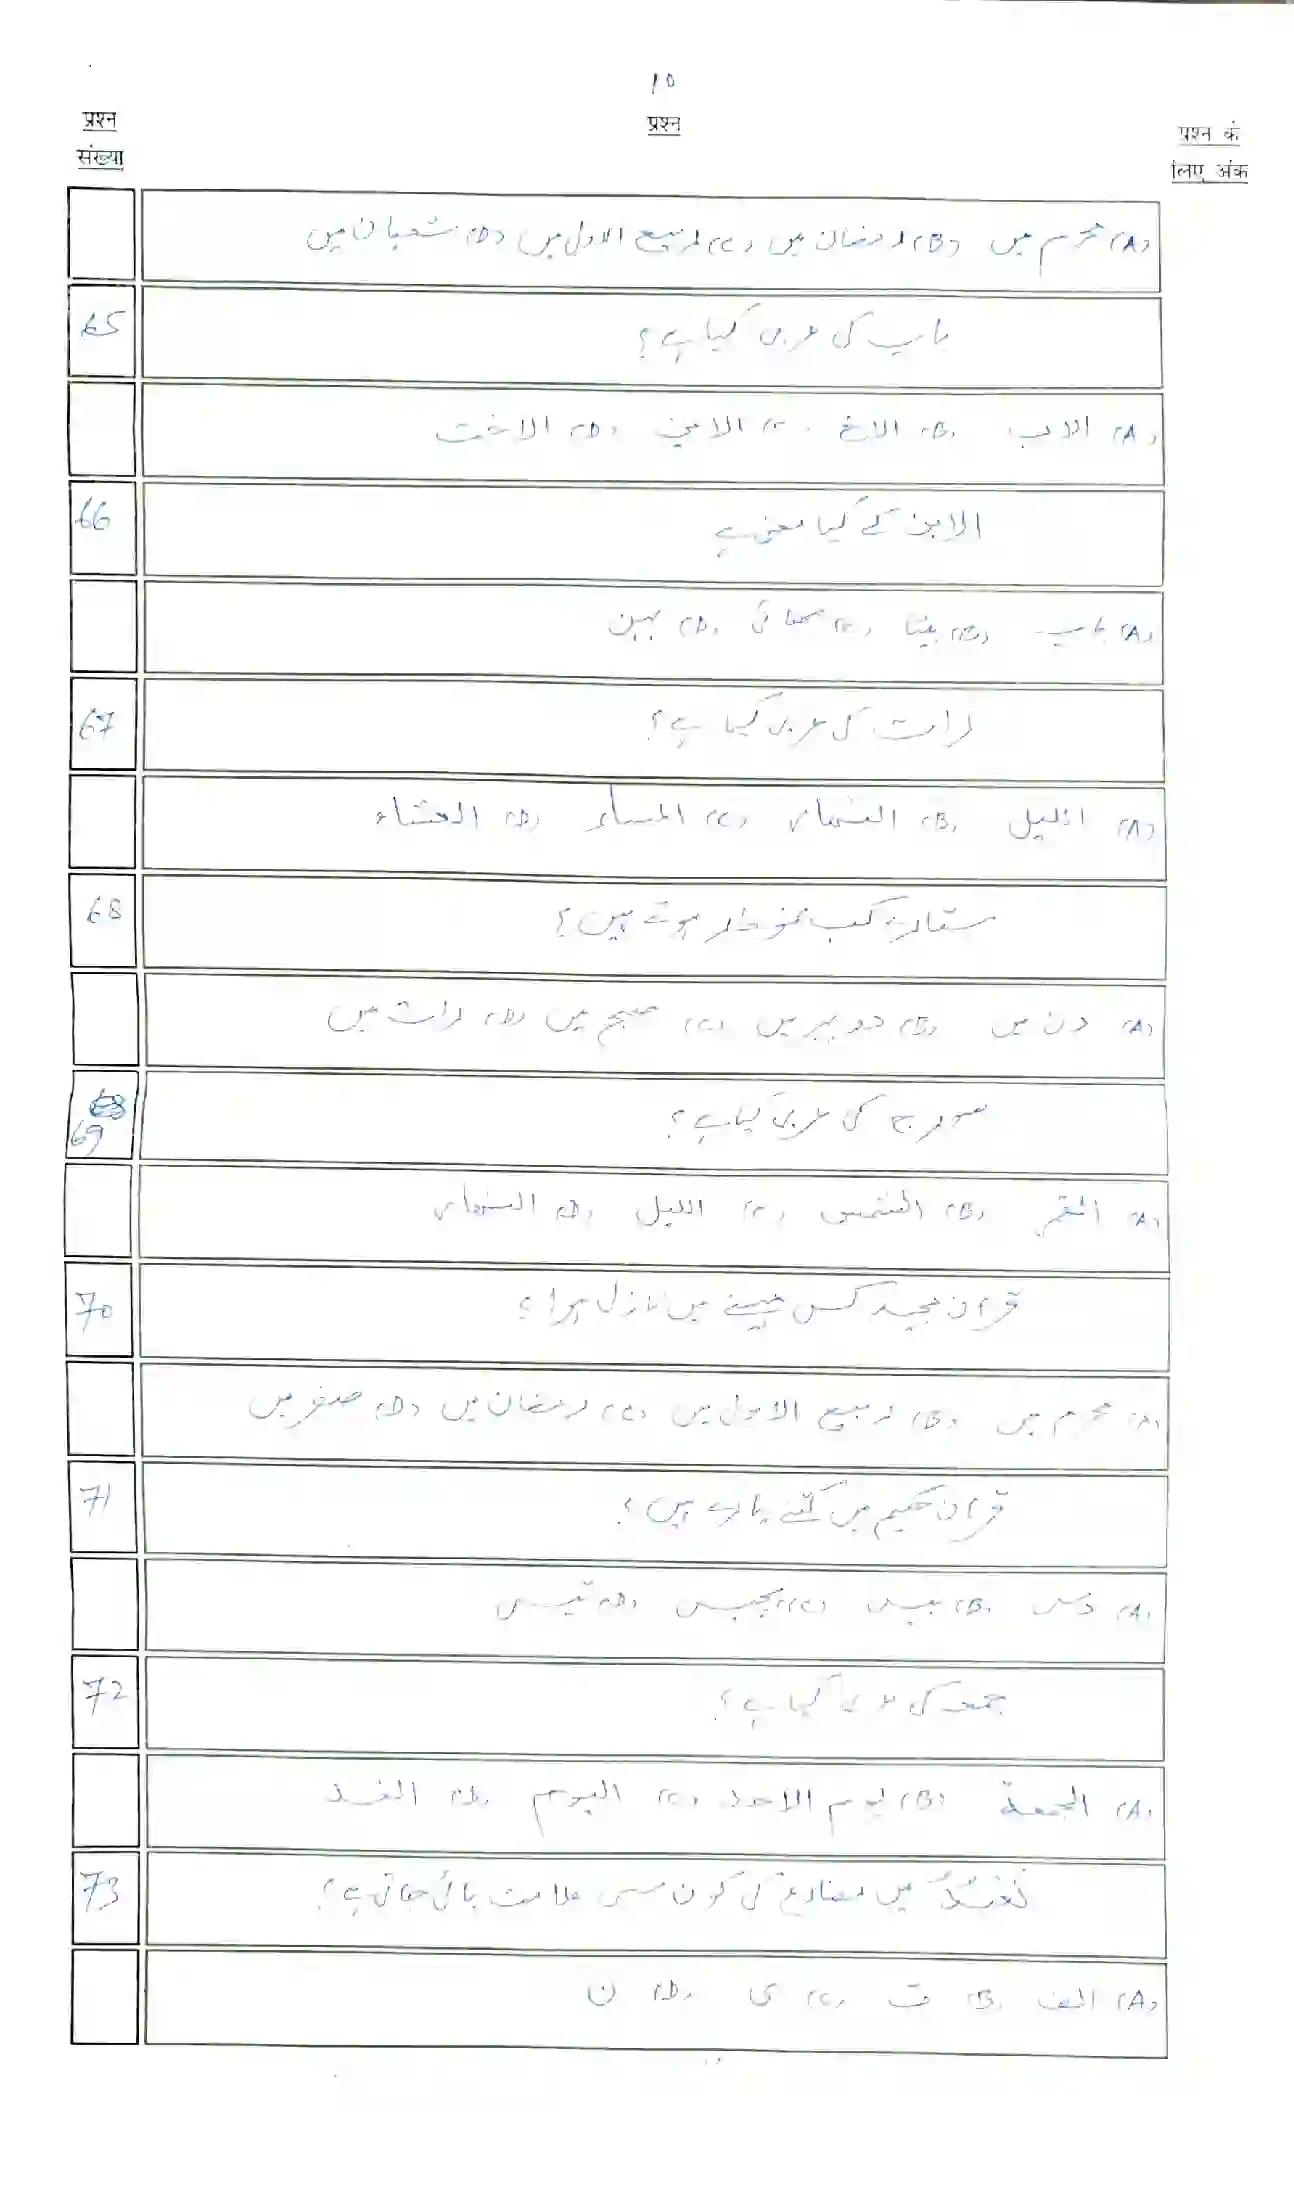 10
प्रश्न संख्या
प्रश्न
प्रश्न के लिए अंक
(A) محرم میں (B) رمضان میں (C) ربیع الاول میں (D) شعبان میں
65 باپ کی عربی کیا ہے؟
(A) الاب (B) الاخ (C) الابن (D) الاخت
66 الابن کے کیا معنی ہے
(A) باپ (B) بیٹا (C) بھائی (D) بہن
67 رات کی عربی کیا ہے؟
(A) اللیل (B) النھار (C) المساء (D) العشاء
68 ستارے کب نمودار ہوتے ہیں؟
(A) دن میں (B) دوپہر میں (C) صبح میں (D) رات میں
69 سورج کی عربی کیا ہے؟
(A) القمر (B) الشمس (C) اللیل (D) النھار
70 قرآن مجید کس مہینے میں نازل ہوا؟
(A) محرم میں (B) ربیع الاول میں (C) رمضان میں (D) صفر میں
71 قرآن حکیم میں کتنے پارے ہیں؟
(A) دس (B) بیس (C) پچیس (D) تیس
72 جمعہ کی عربی کیا ہے؟
(A) الجمعة (B) یوم الاحد (C) الیوم (D) الغد
73 میں مضارع کی کون سی علامت پائی جاتی ہے؟
(A) الف (B) ت (C) ی (D) ن